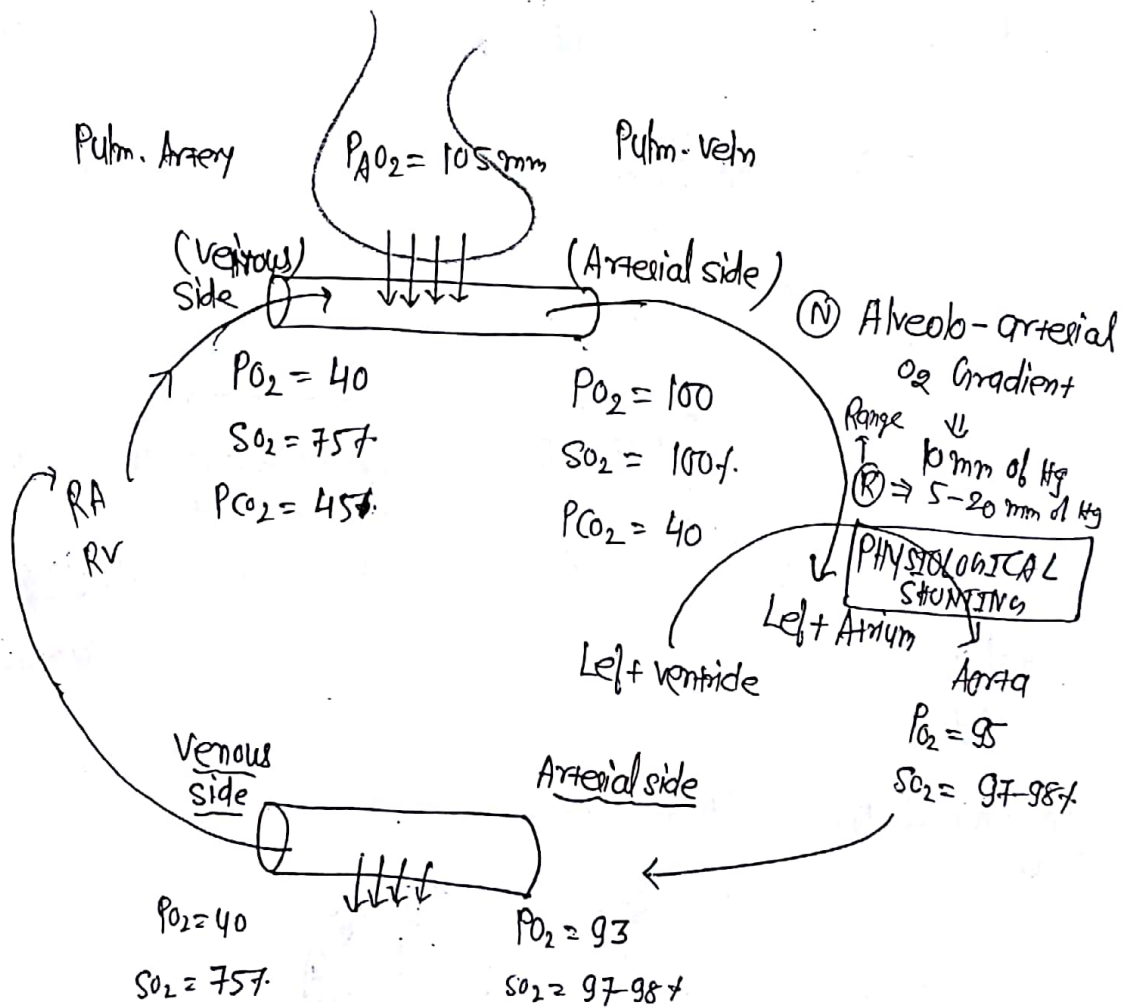 Pulm. Artery
PAO2 = 105 mm
Pulm. Vein
(Venous)
Side
(Arterial side)
Ⓝ Alveolo-arterial
O2 Gradient
⇓
10 mm of Hg
Range
↑
Ⓡ ⇒ 5-20 mm of Hg
PO2 = 40
SO2 = 75%
PCO2 = 45
PO2 = 100
SO2 = 100%
PCO2 = 40
RA
RV
PHYSIOLOGICAL
SHUNTING
Left Atrium
Left ventricle
Aorta
PO2 = 95
SO2 = 97-98%
Venous
side
Arterial side
PO2 = 40
SO2 = 75%
PO2 = 93
SO2 = 97-98%